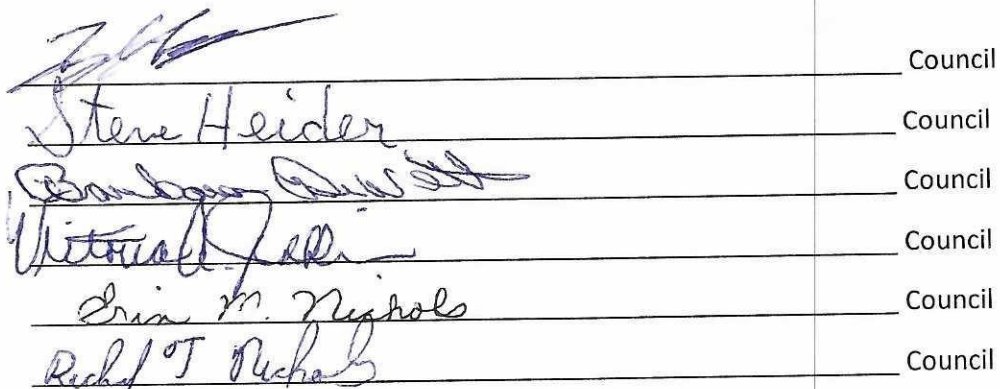 Council
Steve Heider Council
Barbara Council
Victoria Council
Erin M. Nichols Council
Richard T Nichols Council